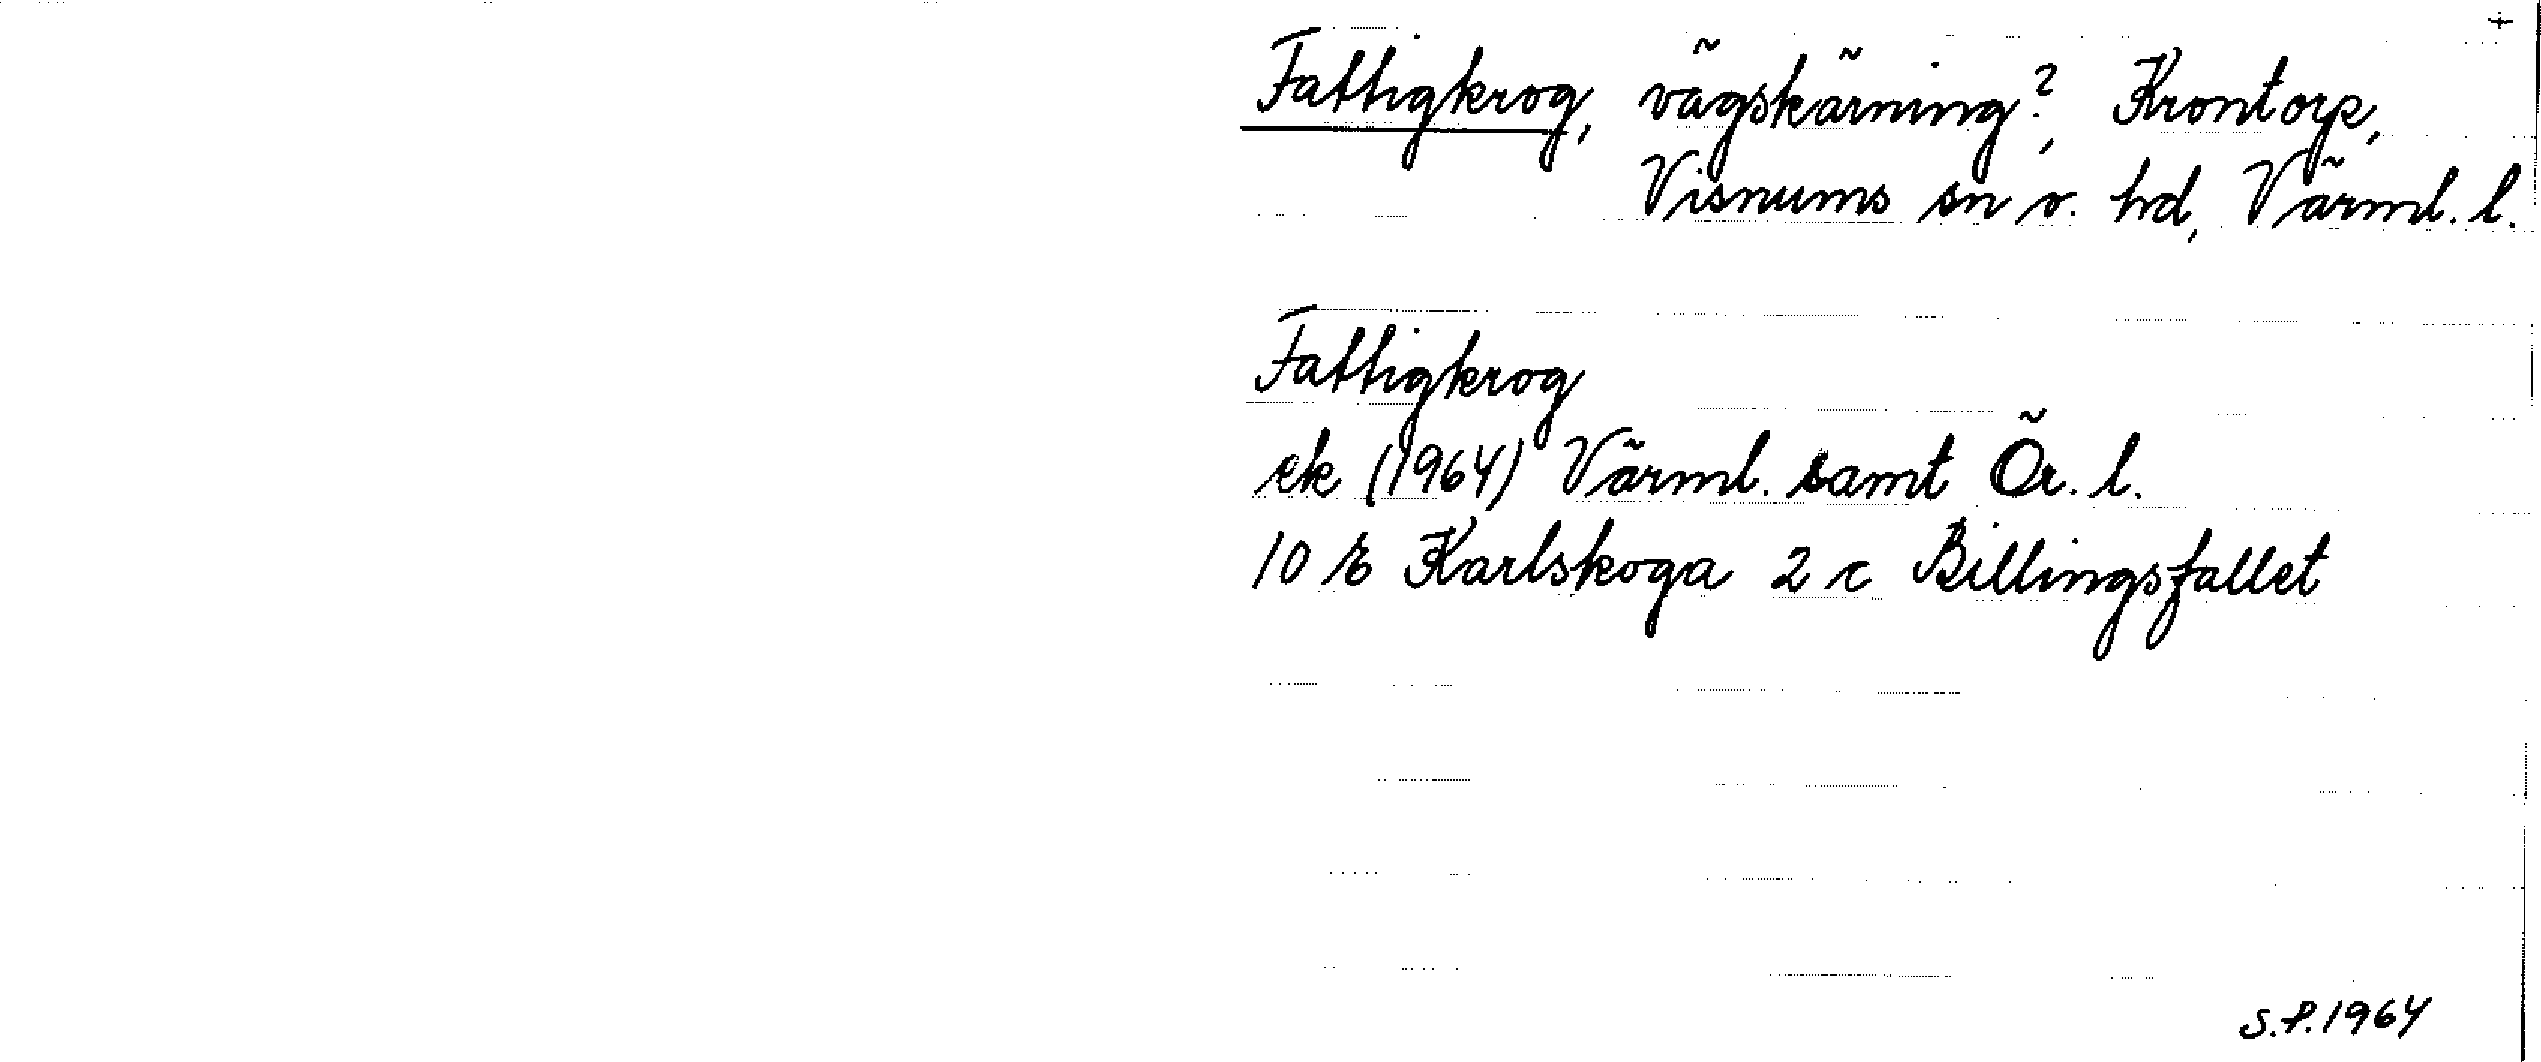 Fattigkrog, vägskärning?, Krontorp,
Visnums sn o. hd, Värml. l.
Fattigkrog
ek (1964) Värml. samt Ör. l.
10 E Karlskoga 2 c Billingsfallet
S.P. 1964